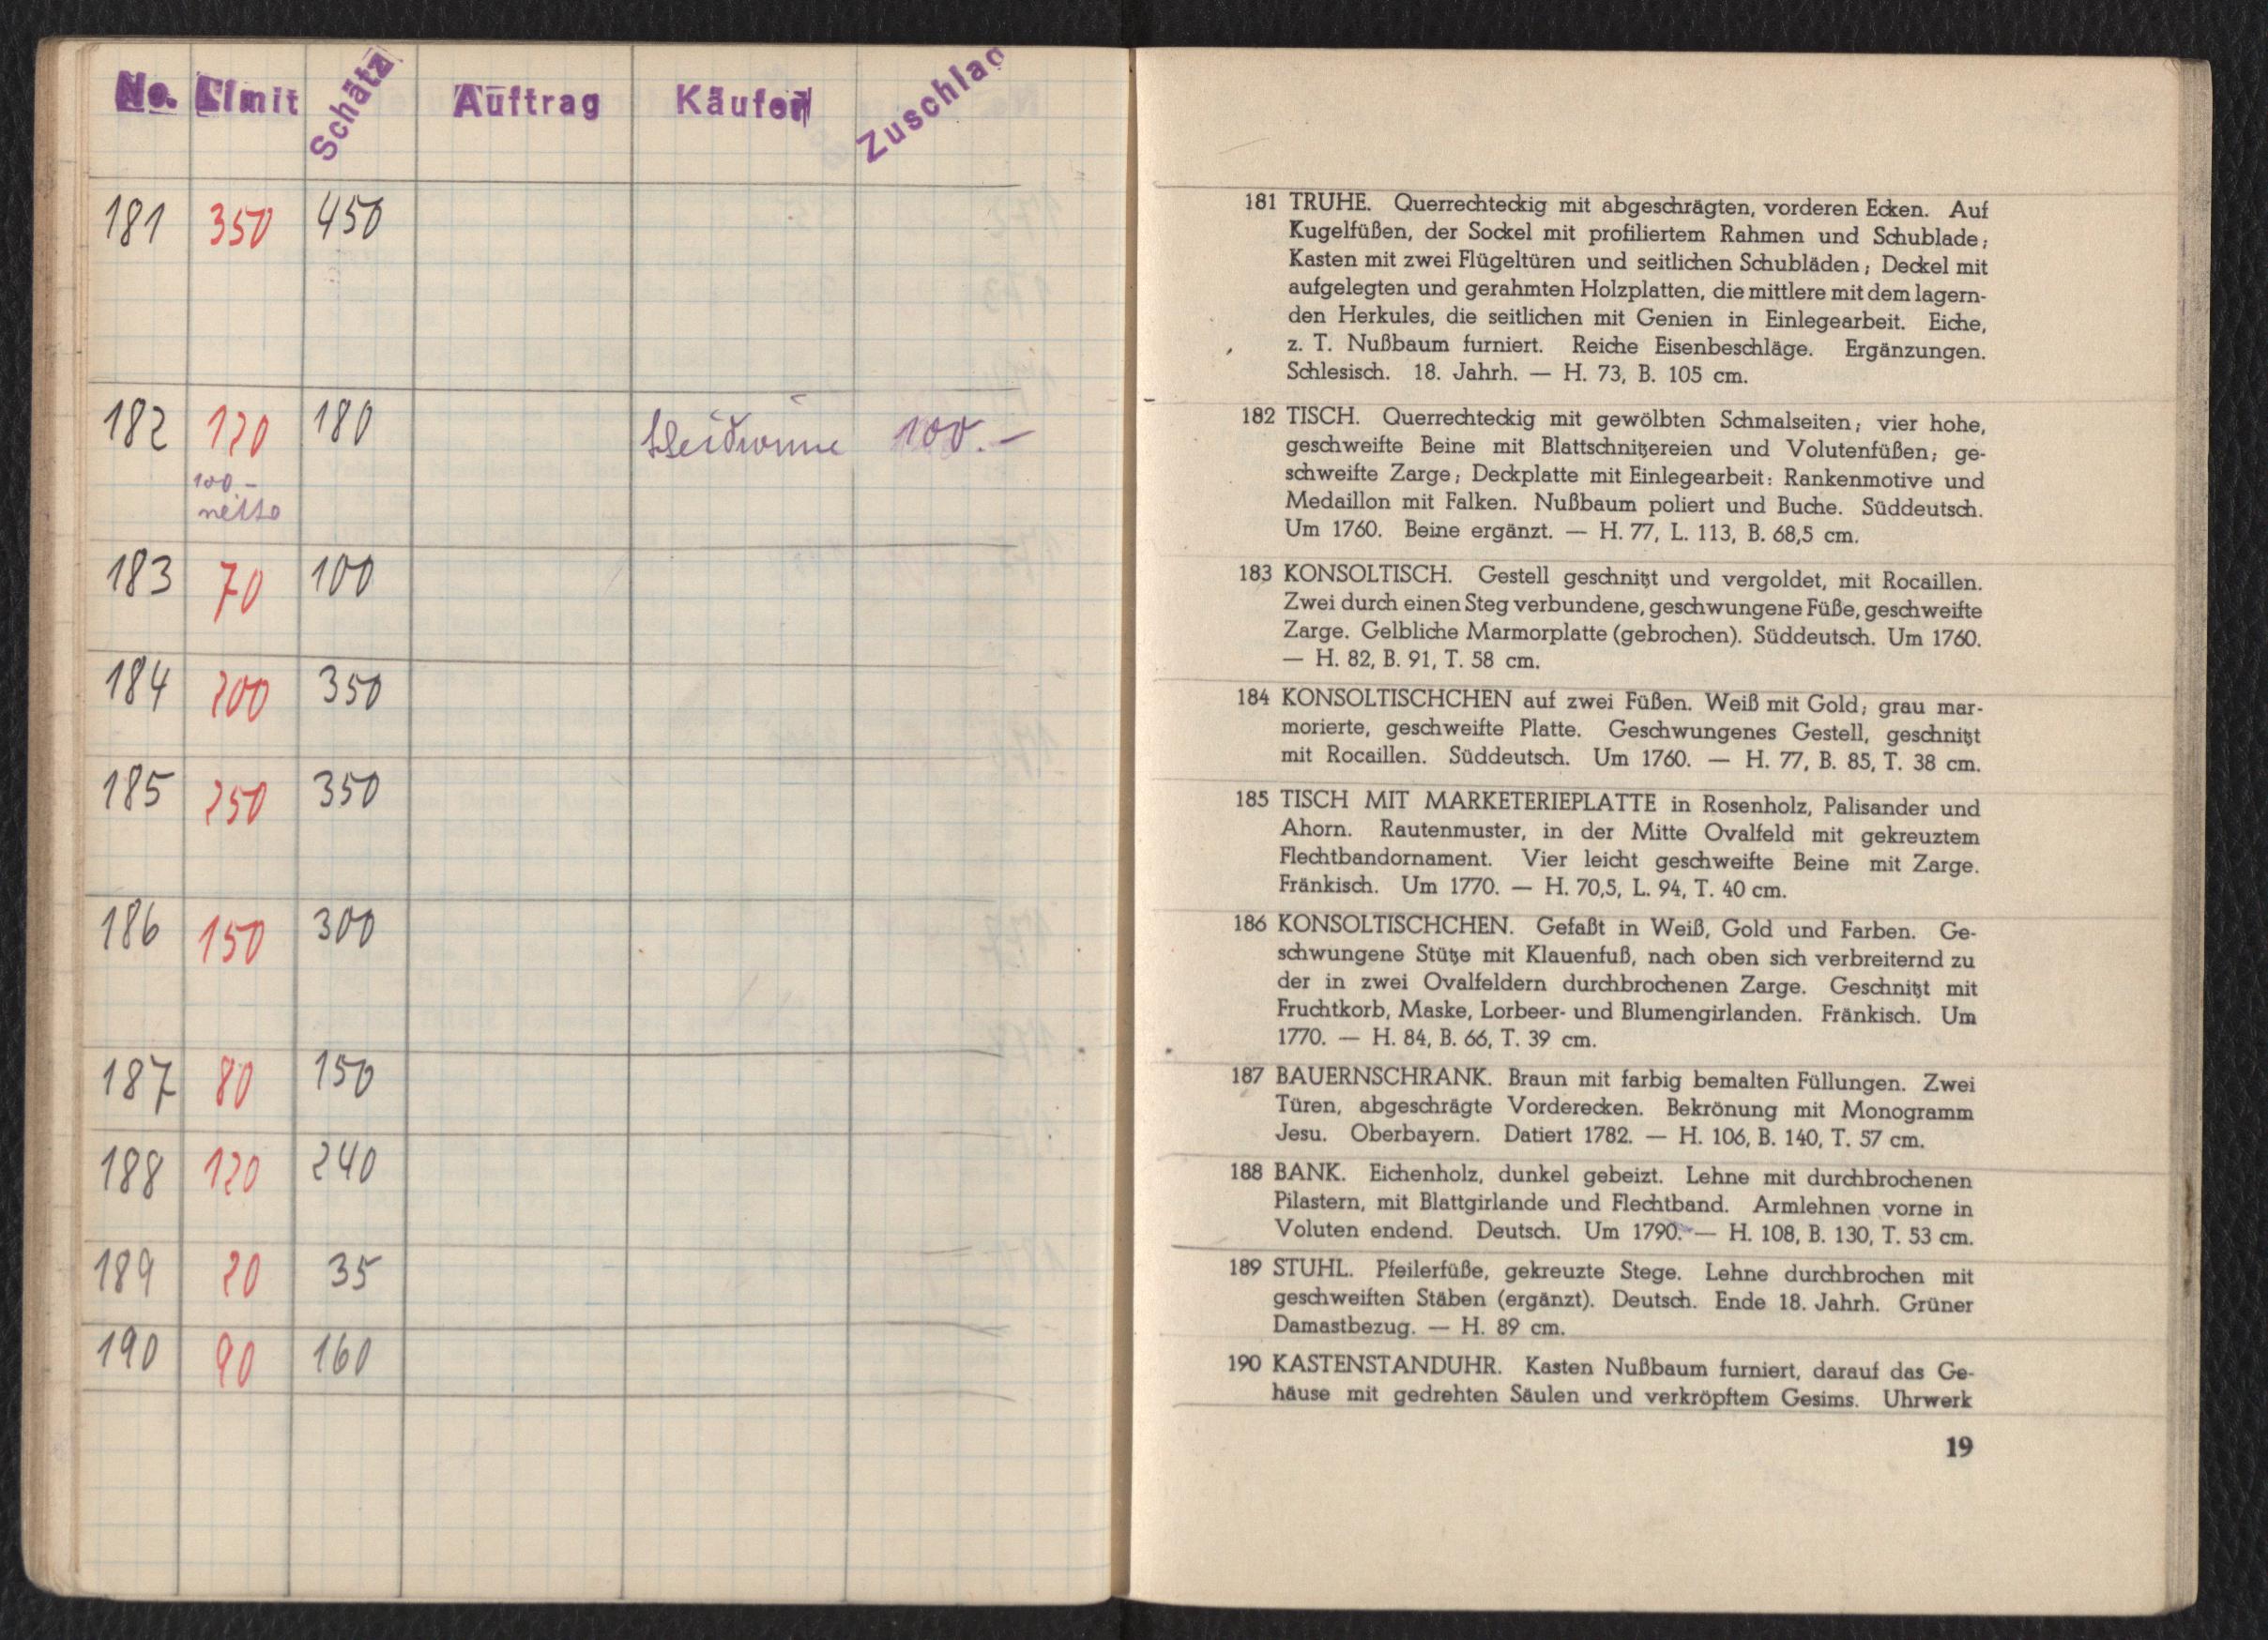 No. Limit Schätz Auftrag Käufer Zuschlag
181 350 450
182 120 180 100.-
100.-
netto
183 70 100
184 200 350
185 250 350
186 150 300
187 80 150
188 120 240
189 20 35
190 90 160
181 TRUHE. Querrechteckig mit abgeschrägten, vorderen Ecken. Auf
Kugelfüßen, der Sockel mit profiliertem Rahmen und Schublade;
Kasten mit zwei Flügeltüren und seitlichen Schubläden; Deckel mit
aufgelegten und gerahmten Holzplatten, die mittlere mit dem lagern-
den Herkules, die seitlichen mit Genien in Einlegearbeit. Eiche,
z. T. Nußbaum furniert. Reiche Eisenbeschläge. Ergänzungen.
Schlesisch. 18. Jahrh. — H. 73, B. 105 cm.
182 TISCH. Querrechteckig mit gewölbten Schmalseiten; vier hohe,
geschweifte Beine mit Blattschnitzereien und Volutenfüßen; ge-
schweifte Zarge; Deckplatte mit Einlegearbeit: Rankenmotive und
Medaillon mit Falken. Nußbaum poliert und Buche. Süddeutsch.
Um 1760. Beine ergänzt. — H. 77, L. 113, B. 68,5 cm.
183 KONSOLTISCH. Gestell geschnitzt und vergoldet, mit Rocaillen.
Zwei durch einen Steg verbundene, geschwungene Füße, geschweifte
Zarge. Gelbliche Marmorplatte (gebrochen). Süddeutsch. Um 1760.
— H. 82, B. 91, T. 58 cm.
184 KONSOLTISCHCHEN auf zwei Füßen. Weiß mit Gold; grau mar-
morierte, geschweifte Platte. Geschwungenes Gestell, geschnitzt
mit Rocaillen. Süddeutsch. Um 1760. — H. 77, B. 85, T. 38 cm.
185 TISCH MIT MARKETERIEPLATTE in Rosenholz, Palisander und
Ahorn. Rautenmuster, in der Mitte Ovalfeld mit gekreuztem
Flechtbandornament. Vier leicht geschweifte Beine mit Zarge.
Fränkisch. Um 1770. — H. 70,5, L. 94, T. 40 cm.
186 KONSOLTISCHCHEN. Gefaßt in Weiß, Gold und Farben. Ge-
schwungene Stütze mit Klauenfuß, nach oben sich verbreiternd zu
der in zwei Ovalfeldern durchbrochenen Zarge. Geschnitzt mit
Fruchtkorb, Maske, Lorbeer- und Blumengirlanden. Fränkisch. Um
1770. — H. 84, B. 66, T. 39 cm.
187 BAUERNSCHRANK. Braun mit farbig bemalten Füllungen. Zwei
Türen, abgeschrägte Vorderecken. Bekrönung mit Monogramm
Jesu. Oberbayern. Datiert 1782. — H. 106, B. 140, T. 57 cm.
188 BANK. Eichenholz, dunkel gebeizt. Lehne mit durchbrochenen
Pilastern, mit Blattgirlande und Flechtband. Armlehnen vorne in
Voluten endend. Deutsch. Um 1790. — H. 108, B. 130, T. 53 cm.
189 STUHL. Pfeilerfüße, gekreuzte Stege. Lehne durchbrochen mit
geschweiften Stäben (ergänzt). Deutsch. Ende 18. Jahrh. Grüner
Damastbezug. — H. 89 cm.
190 KASTENSTANDUHR. Kasten Nußbaum furniert, darauf das Ge-
häuse mit gedrehten Säulen und verkröpftem Gesims. Uhrwerk
19